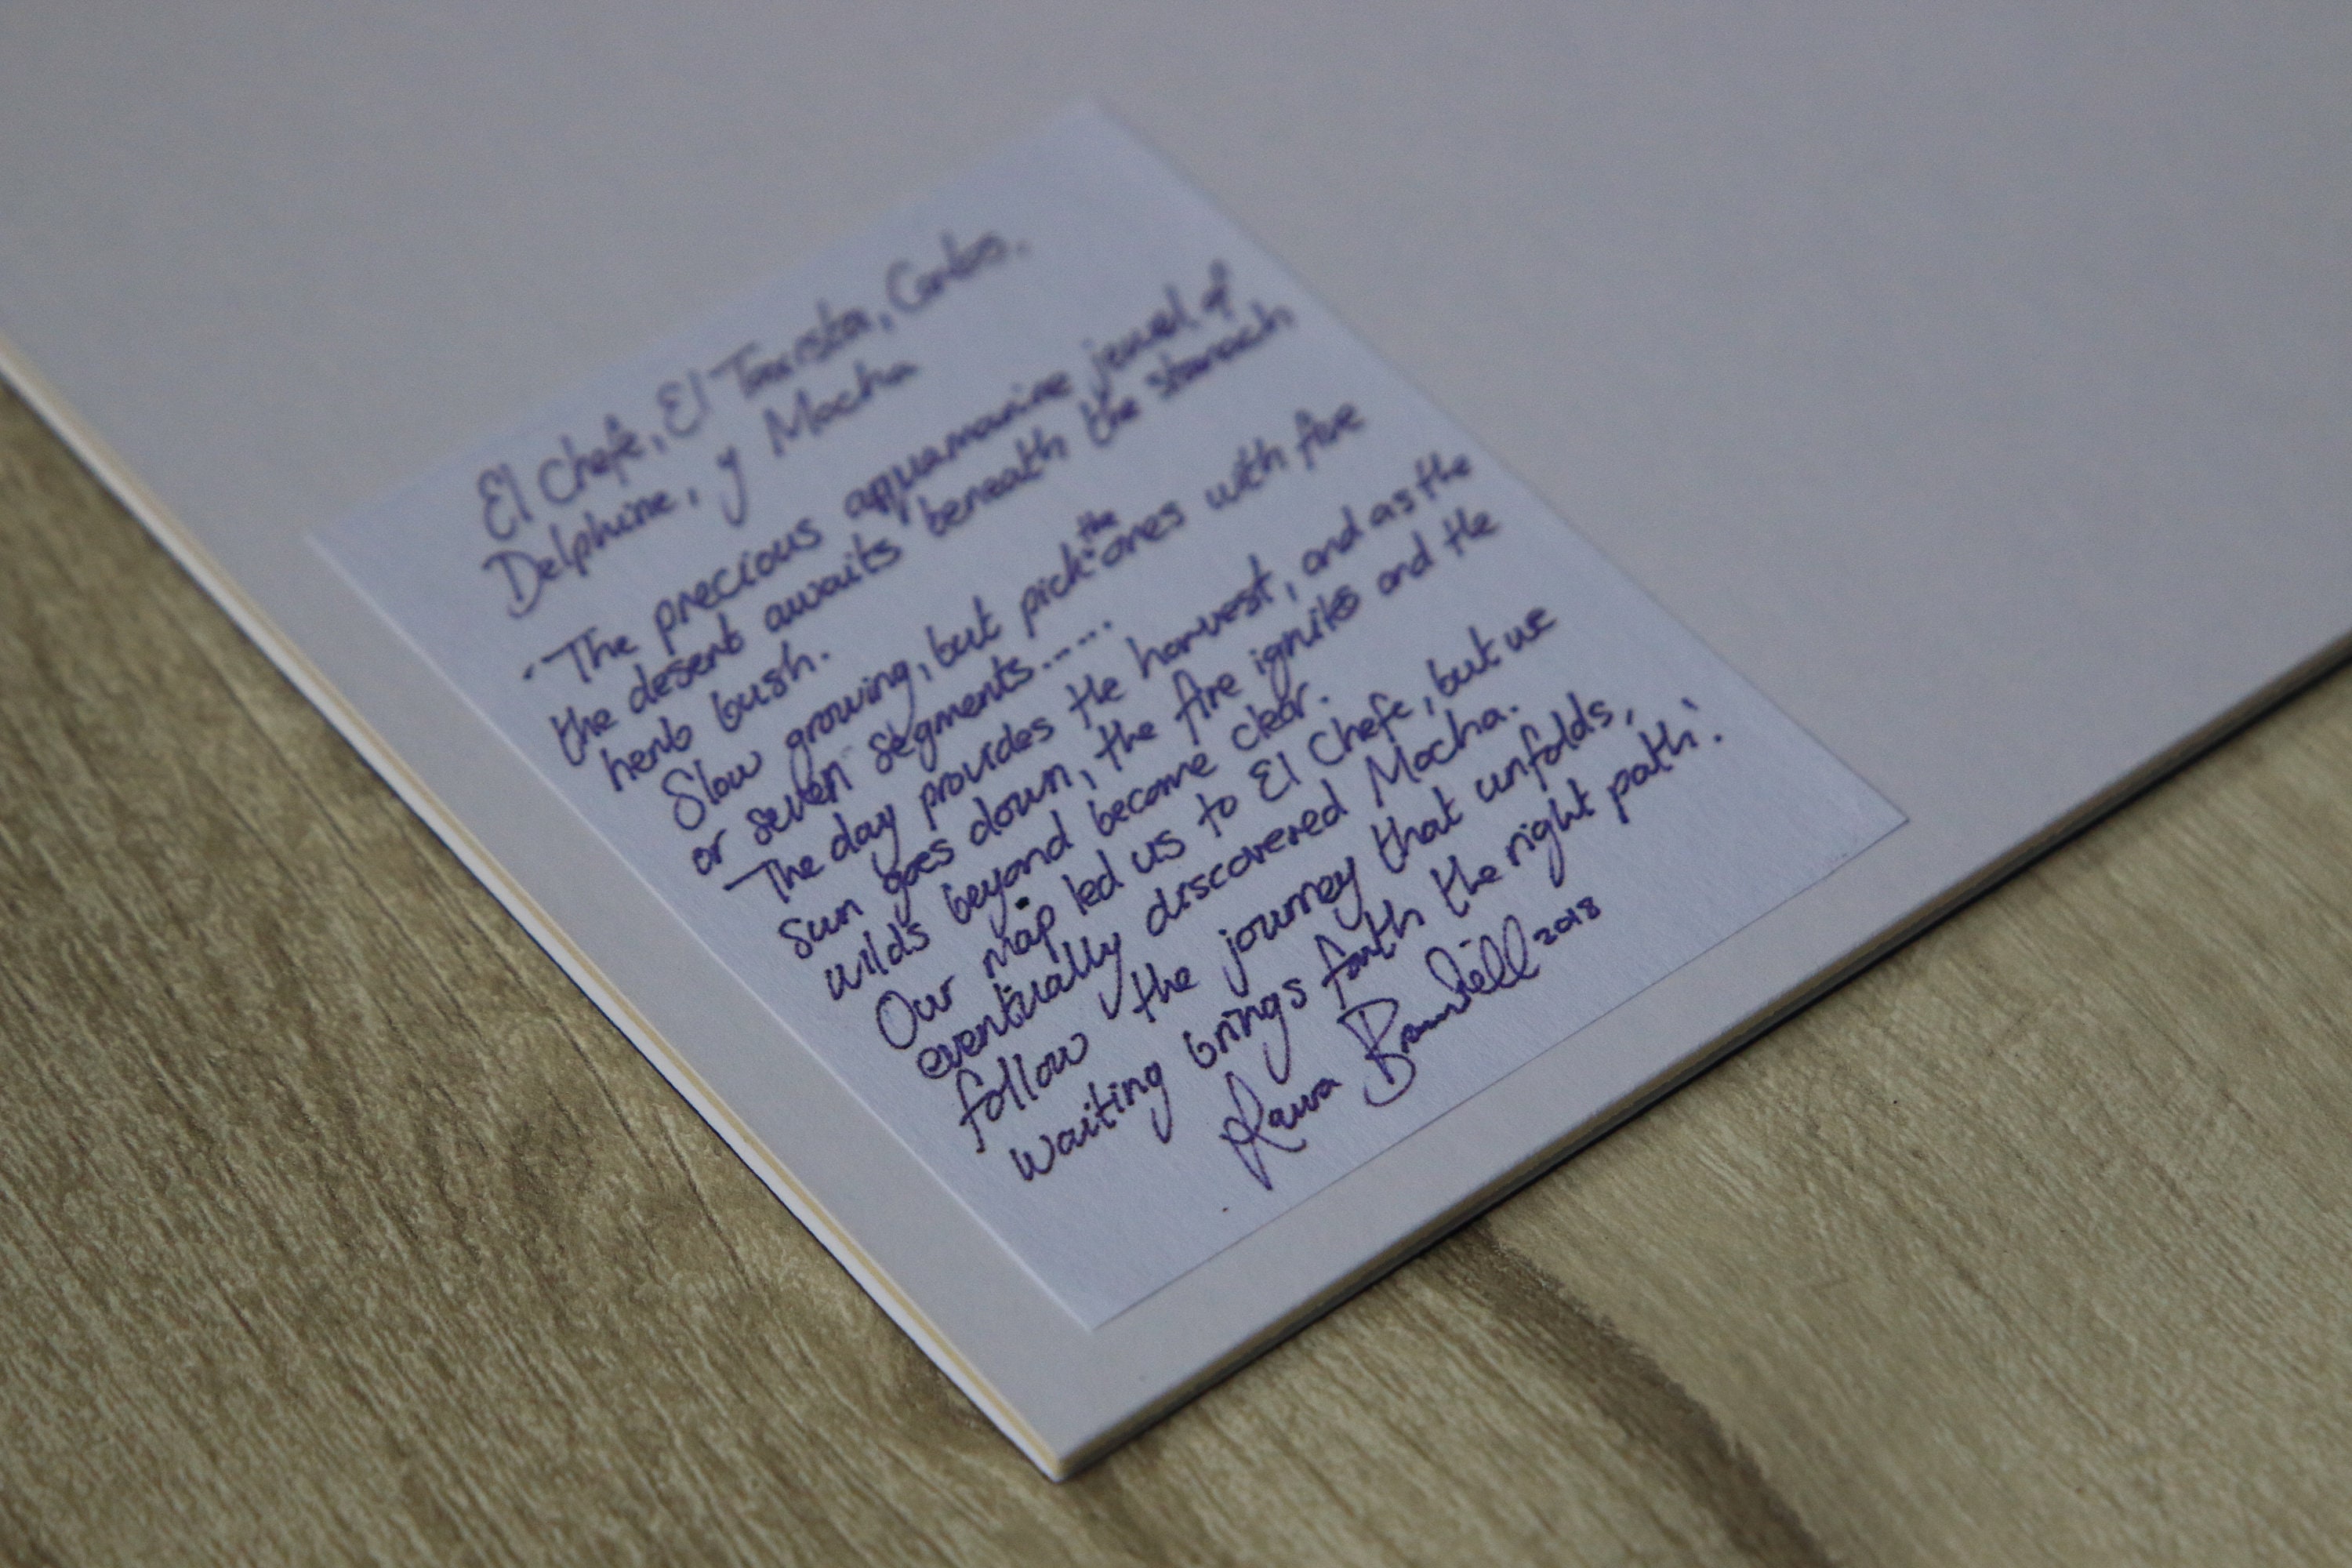 El Chefe, El Taxista, Carlos,
Delphine, y Mocha
'The precious aquamarine jewel of
the desert awaits beneath the stomach
herb bush.
Slow growing, but pick the ones with five
or seven segments.....
The day provides the harvest, and as the
sun goes down, the fire ignites and the
wilds beyond become clear.
Our map led us to El Chefe, but we
eventually discovered Mocha.
follow the journey that unfolds,
waiting brings forth the right path'.
2018